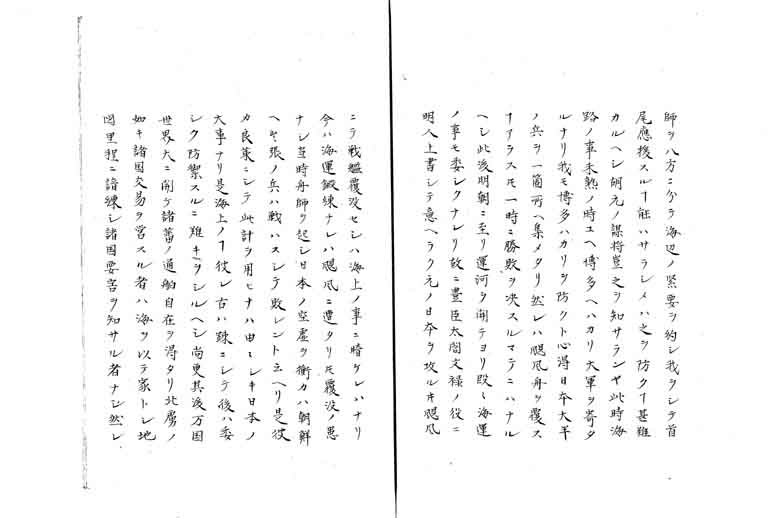 師ヲ八方ニ分テ海辺ノ緊要ヲ約シ我ヲシテ首
尾應援スルヿ能ハサラシメハ之ヲ防クヿ甚難
カルヘシ胡元ノ謀将豈之ヲ知サランヤ此時海
路ノ事未熟ノ時ユヘ博多ヘハカリ大軍ヲ寄タ
ルナリ我モ博多ハカリヲ防クト心得日本大半
ノ兵ヲ一箇所ヘ集メタリ然レハ颶風舟ヲ覆ス
ナアラスモ一時ニ勝敗ヲ决スルマテニハナル
ヘシ此後明朝ニ至リ運河ヲ開テヨリ段〻海運
ノ事モ委シクナレリ故ニ豊臣太閤文禄ノ役ニ
明人上書シテ意ヘラク元ノ日本ヲ攻ルキ颶風
ニテ戦艦覆没セシハ海上ノ事ニ暗ケレハナリ
今ハ海運鍛練ナレハ颶風ニ遭タリモ覆没ノ愚
ナシ至時舟師ヲ起シ日本ノ空虚ヲ衝カハ朝鮮
ヘ出張ノ兵ハ戦ハスシテ敗レント云ヘリ是彼
カ良策ニシテ此計ヲ用ヒナハ由〻シキ日本ノ
大事ナリ是海上ノヿ彼レ古ハ疎ニシテ後ハ委
シク防禦スルニ難キヲシルヘシ尚更其後万国
世界大ニ開ケ諸蕃ノ通舶自在ヲ得タリ北虜ノ
如キ諸国交易ヲ営スル者ハ海ヲ以テ家トシ地
図里程ニ諳練シ諸国要害ヲ知サル者ナシ然レ